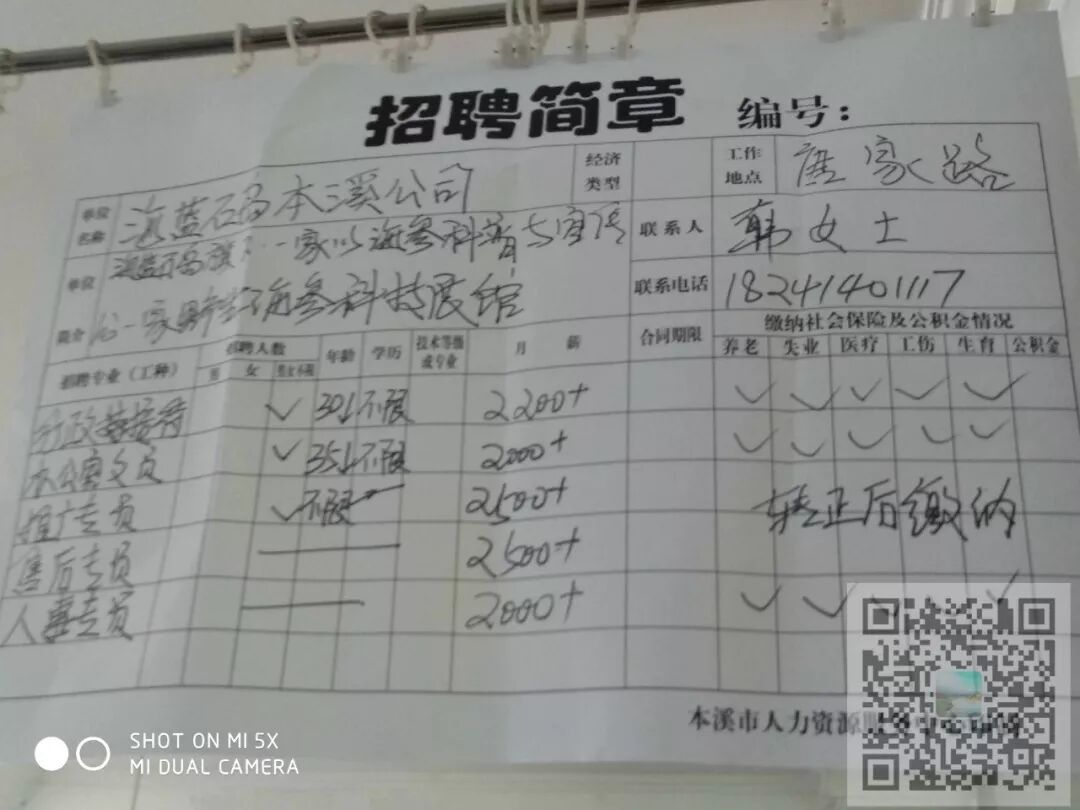 招聘简章 编号：
单位名称 海蓝石马本溪公司 经济类型 工作地点 唐家路
联系人 韩女士
单位简介 一家以海参科普与宣传
一家 海参科技展馆
联系电话 18241401117
招聘专业（工种） 招聘人数 男 女 男女不限 年龄 学历 技术等级或专业 月薪 合同期限 缴纳社会保险及公积金情况
养老 失业 医疗 工伤 生育 公积金
行政 接待 ✓ 30↓ 不限 2200+ ✓ ✓ ✓ ✓ ✓
办公室文员 ✓ 35↓ 不限 2000+ ✓ ✓ ✓ ✓ ✓
推广专员 ✓ 不限 2500+ 转正后缴纳
售后专员 2500+
人事专员 2000+ ✓ ✓ ✓ ✓ ✓
本溪市人力资源
SHOT ON MI 5X
MI DUAL CAMERA